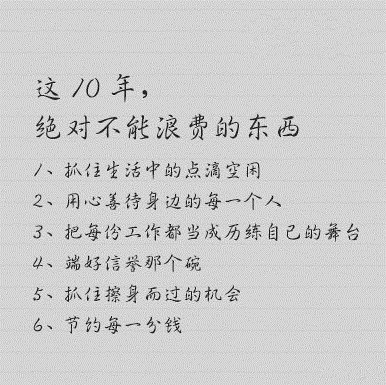 这 10 年，
绝对不能浪费的东西
1、抓住生活中的点滴空闲
2、用心善待身边的每一个人
3、把每份工作都当成历练自己的舞台
4、端好信誉那个碗
5、抓住擦身而过的机会
6、节约每一分钱